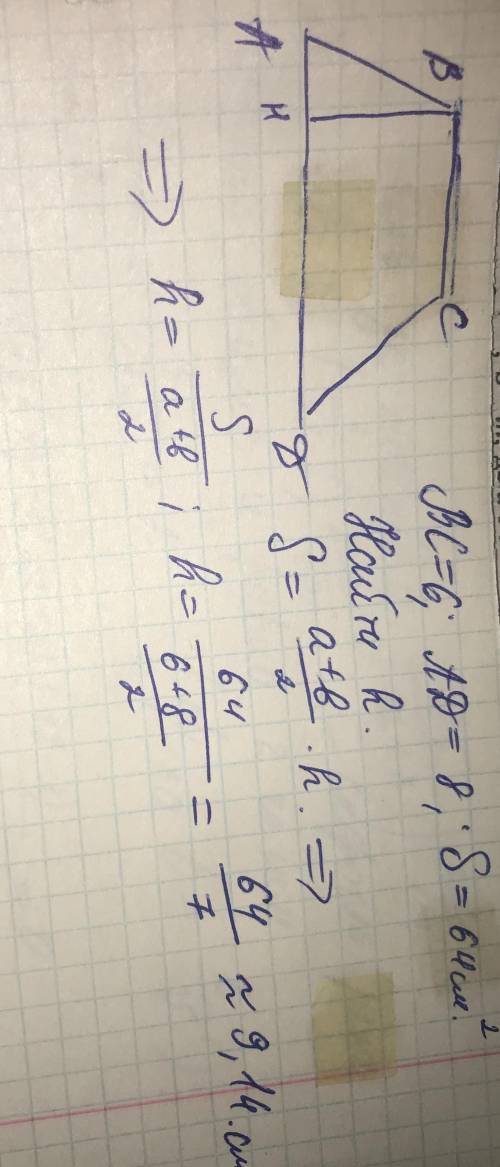 B C
A H D
BC=6; AD=8; S=64см.²
Найти h.
S = a+b/2 · h. ⇒
⇒ h = S/(a+b/2) ; h = 64/(6+8/2) = 64/7 ≈ 9,14.см